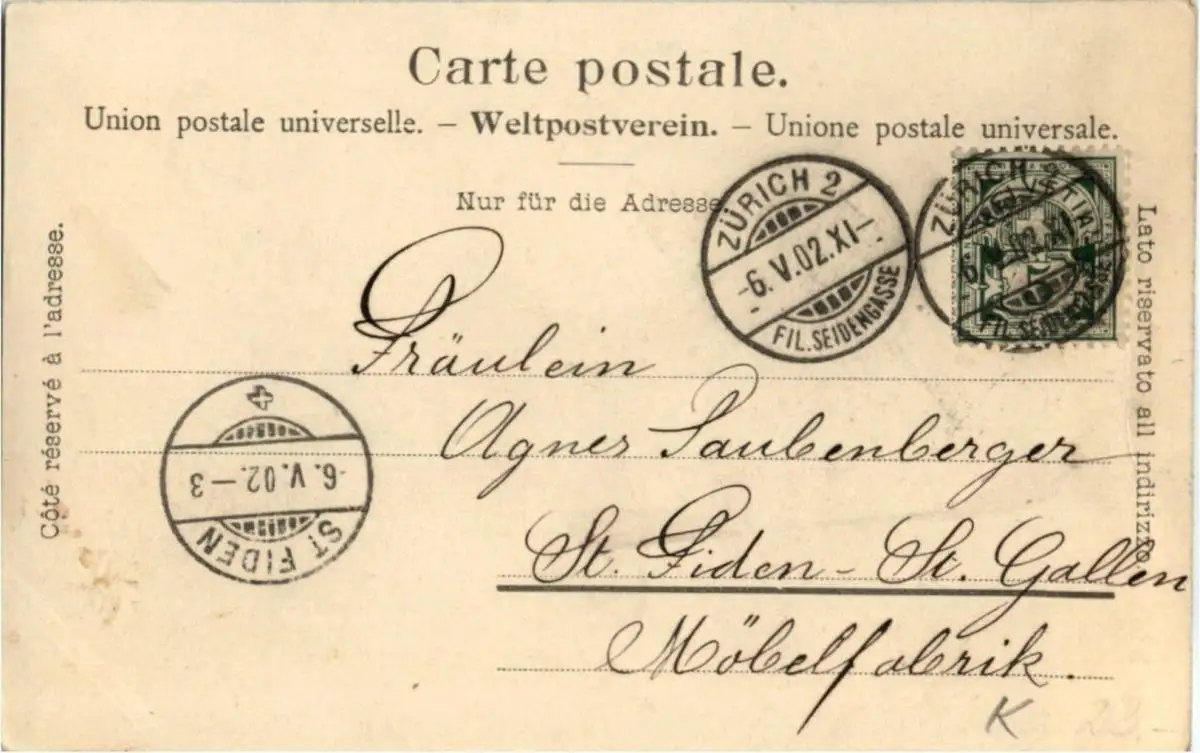 Carte postale.
Union postale universelle. – Weltpostverein. – Unione postale universale.
Nur für die Adresse
Côté réservé à l'adresse.
Lato riservato all indirizzo.
ZÜRICH 2
-6. V. 02. XI-
FIL. SEIDENGASSE
ZÜRICH 2
6. V. 02. XI
FIL. SEIDENGASSE
HELVETIA
Fräulein
Agnes Taubenberger
St. Fiden - St. Gallen
Möbelfabrik.
ST. FIDEN
-6. V. 02.-3
K
23.-